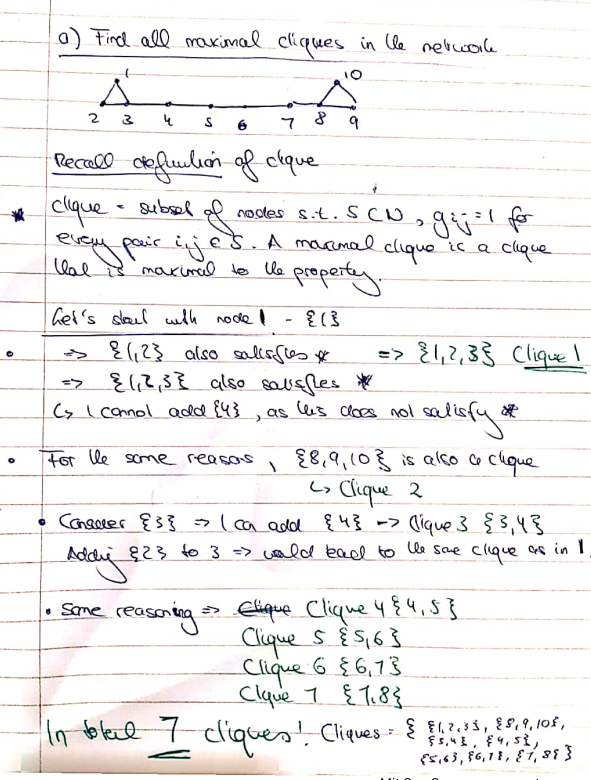 a) Find all maximal cliques in the network
1 10
2 3 4 5 6 7 8 9
Recall definition of clique
* clique = subset of nodes s.t. S ⊂ N, gij = 1 for
every pair i,j ∈ S. A maximal clique is a clique
that is maximal to the property.
Let's start with node 1 - {1}
• => {1,2} also satisfies * => {1,2,3} Clique 1
=> {1,2,3} also satisfies *
↳ I cannot add {4}, as this does not satisfy *
• For the same reasons, {8,9,10} is also a clique
↳ Clique 2
• Consider {3} => I can add {4} -> Clique 3 {3,4}
Adding {2} to 3 => would lead to the same clique as in 1.
• Same reasoning => Clique 4 {4,5}
Clique 5 {5,6}
Clique 6 {6,7}
Clique 7 {7,8}
In total 7 cliques! Cliques = { {1,2,3}, {8,9,10},
{3,4}, {4,5},
{5,6}, {6,7}, {7,8} }